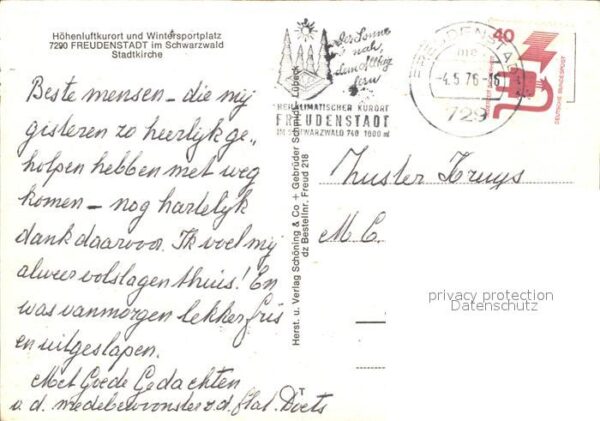 Höhenluftkurort und Wintersportplatz
7290 FREUDENSTADT im Schwarzwald
Stadtkirche
Beste mensen – die mij
gisteren zo heerlijk ge„
holpen hebben met weg
komen – nog hartelijk
dank daarvoor. Ik voel mij
alweer volslagen thuis! En
was vanmorgen lekker fris
en uitgeslapen.
Met Goede Gedachten
a.d. medebewoonster v.d. flat.
Herst. u. Verlag Schöning & Co + Gebrüder Schmidt, Lübeck
dz Bestellnr. Freud 218
der Sonne
so nah,
dem Alltag
fern
HEILKLIMATISCHER KURORT
FREUDENSTADT
IM SCHWARZWALD 740 1000 m
FREUDENSTADT
-4.5.76-16
729
40
DEUTSCHE BUNDESPOST
Zuster Kruys
M.C.
privacy protection
Datenschutz